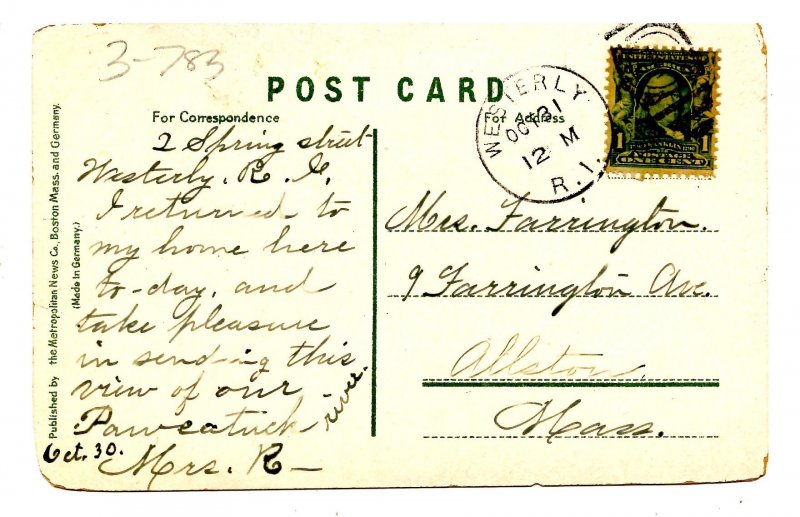 3-783
POST CARD
For Correspondence
For Address
2 Spring street
Westerly, R. I.
I returned to
my home here
to-day, and
take pleasure
in sending this
view of our
Pawcatuck river.
Oct. 30.
Mrs. R—
WESTERLY
OCT 31
12 M
R.I.
UNITED STATES
OF AMERICA
1 FRANKLIN 1
POSTAGE
ONE CENT
Mrs. Farrington.
9 Farrington Ave.
Allston
Mass.
Published by the Metropolitan News Co., Boston Mass. and Germany.
(Made in Germany.)